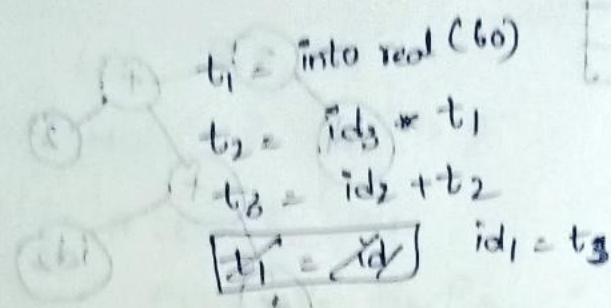 t₁ = into real (60)
t₂ = id₃ * t₁
t₃ = id₂ + t₂
t₁ = id id₁ = t₃